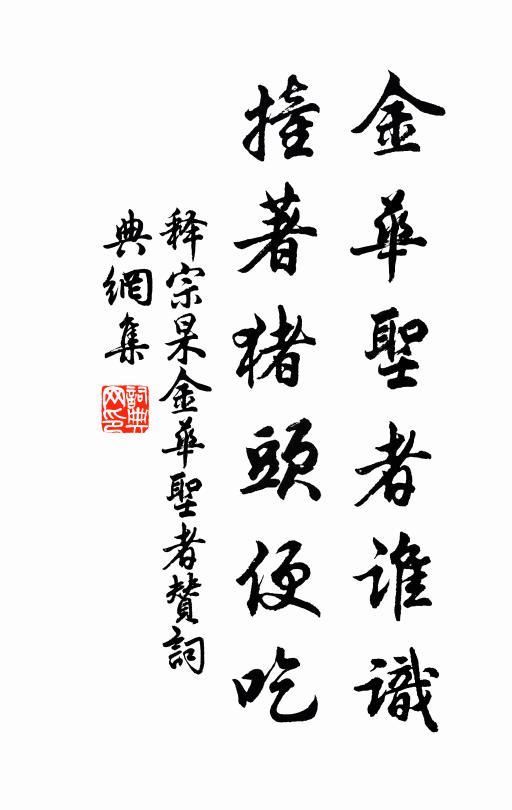 金華聖者誰識
撞著猪頭便吃
释宗杲金華聖者赞詞
典網集
詞典網印